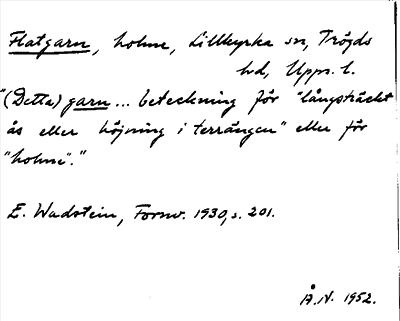 Flatgarn, holme, Lillkyrka sn, Trögds
hd, Upps. l.
"(Detta) garn... beteckning för "långsträckt
ås eller höjning i terrängen" eller för
"holme"."
E. Wadstein, Fornv. 1930, s. 201.
Å.N. 1952.